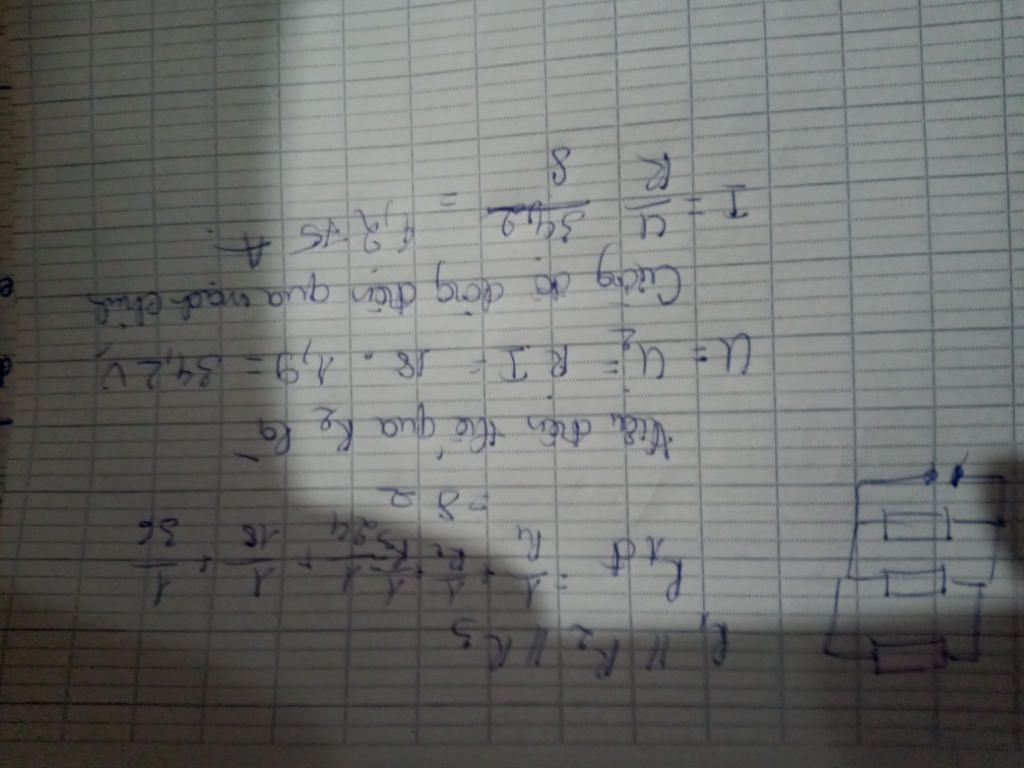 R₁ // R₂ // R₃
R₁ tđ = 1/R₁ + 1/R₂ + 1/R₃ = 1/24 + 1/18 + 1/36
= 8 Ω
Hiệu điện thế qua R₂ là
U = U₂ = R.I = 18.1,9 = 34,2 V
Cường độ dòng điện qua mạch chính
I = U/R = 34,2/8 = A